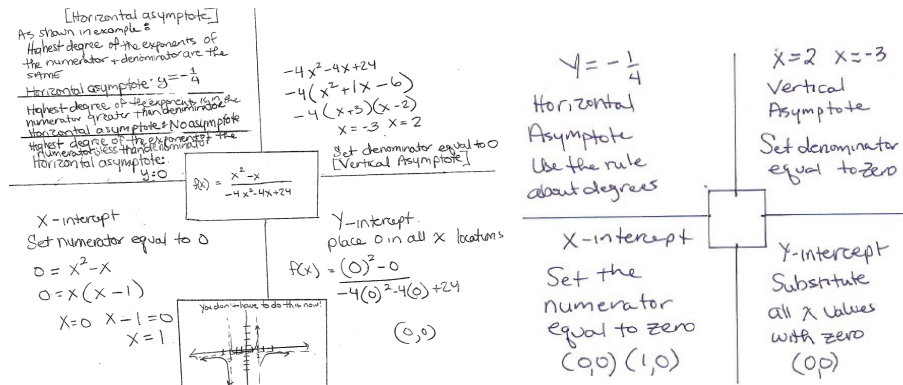 [Horizontal asymptote]
As shown in example:
Highest degree of the exponents of
the numerator + denominator are the
same
Horizontal asymptote: y = -1/4
Highest degree of the exponents is in the
numerator greater than denominator
Horizontal asymptote: No asymptote
Highest degree of the exponents of the
numerator is less than denominator
Horizontal asymptote:
y=0
-4x²-4x+24
-4(x²+1x-6)
-4(x+3)(x-2)
x=-3 x=2
Set denominator equal to 0
[Vertical Asymptote]
f(x) = x²-x / -4x²-4x+24
X-intercept
Set numerator equal to 0
0 = x²-x
0 = x(x-1)
x=0 x-1=0
x=1
Y-intercept
place 0 in all x locations
f(x) = (0)²-0 / -4(0)²-4(0)+24
(0,0)
You don't have to do this now!
Y = -1/4
Horizontal
Asymptote
Use the rule
about degrees
x=2 x=-3
Vertical
Asymptote
Set denominator
equal to zero
X-intercept
Set the
numerator
equal to zero
(0,0) (1,0)
Y-intercept
Substitute
all x values
with zero
(0,0)